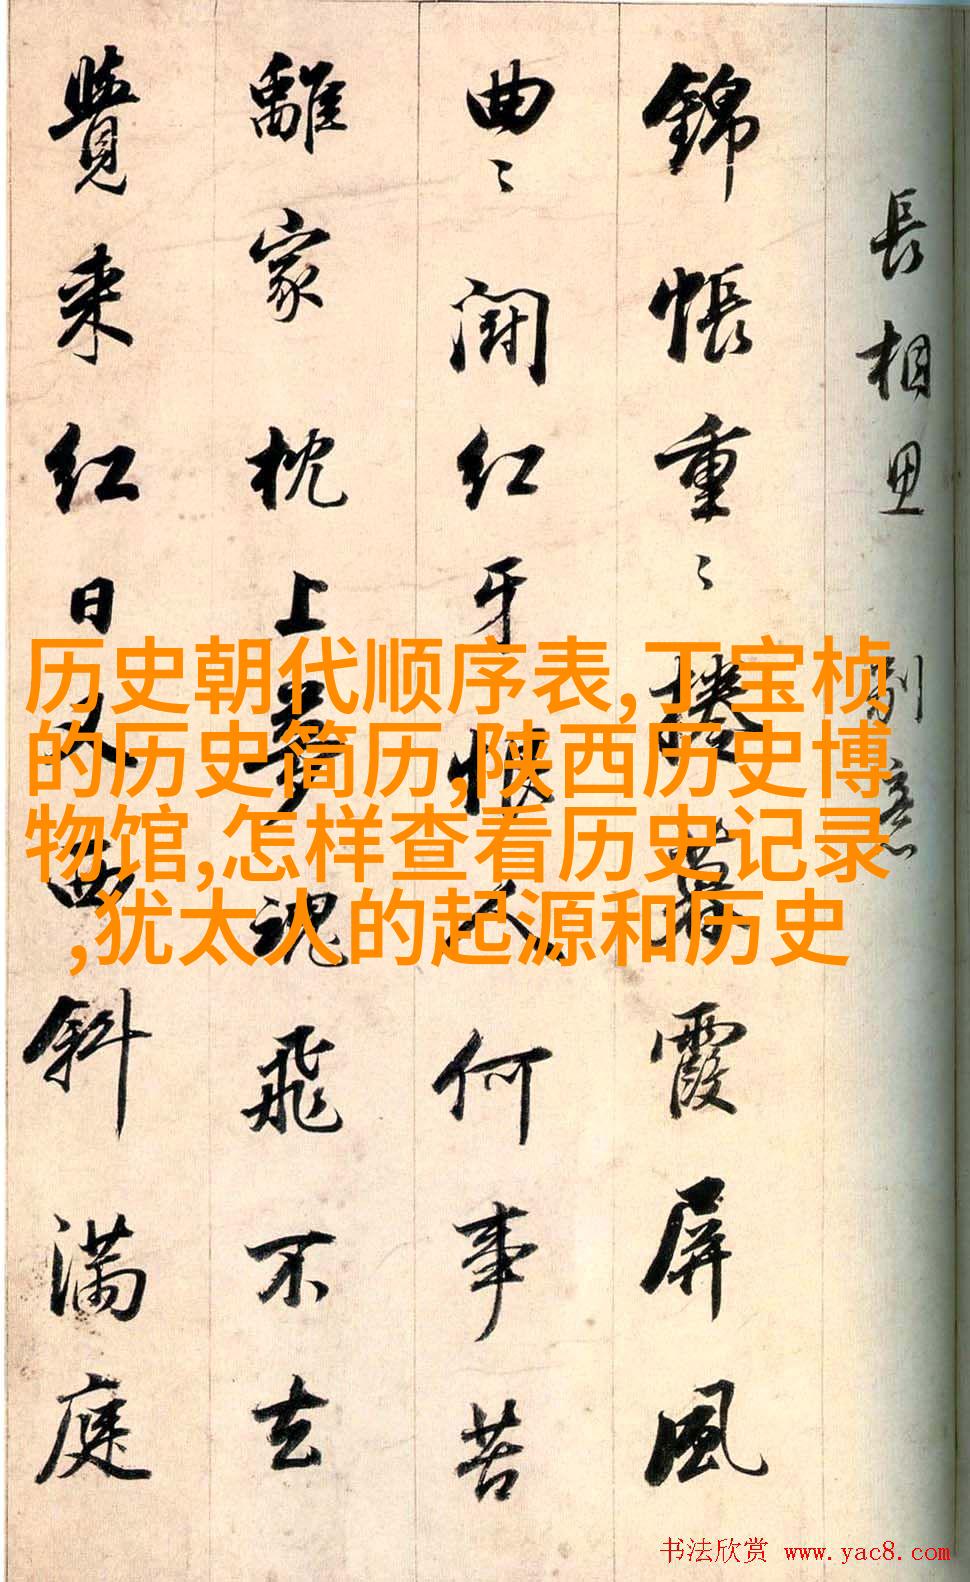 長相思 别意
錦帳重〻捲暮霞屏風
曲〻鬪紅牙恨人何事苦
離家枕上夢魂飛不去
覺来紅日又西斜滿庭
历史朝代顺序表,丁宝桢
的历史简历,陕西历史博
物馆,怎样查看历史记录
,犹太人的起源和历史
书法欣赏 www.yac8.com